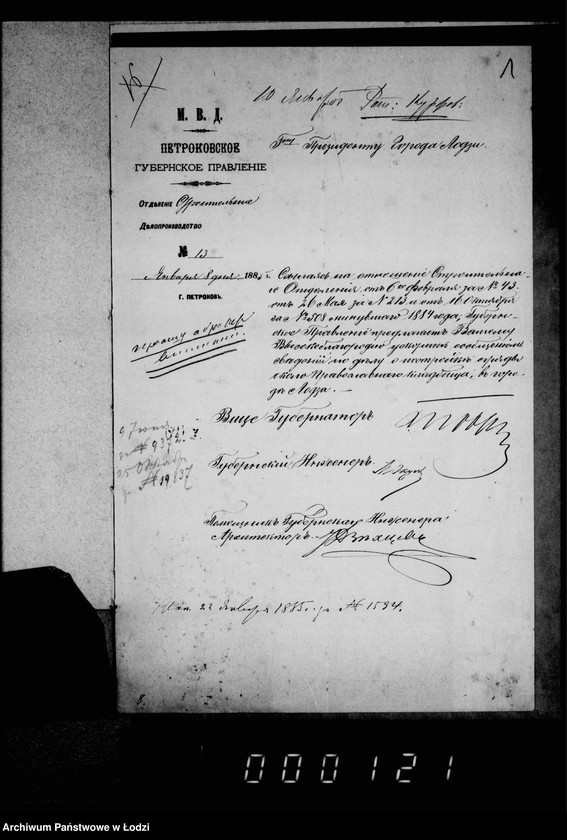 1
10 Января
М. В. Д.
ПЕТРОКОВСКОЕ
ГУБЕРНСКОЕ ПРАВЛЕНІЕ
Отдѣленіе Строительное
Дѣлопроизводство
№ 13
Января 8 дня 1885 г.
Г. ПЕТРОКОВЪ.
Гну Президенту Города Лодзи.
Ссылаясь на отношенія Строительна-
го Отдѣленія отъ 6го Февраля за № 43
отъ 26 Мая за № 213 и отъ 16 Октября
за № 508 минувшаго 1884 года, Губерн-
ское Правленіе предлагаетъ Вашему
Высокоблагородію ускорить доставленіемъ
свѣдѣній по дѣлу о постройкѣ
Православнаго кладбища, въ горо-
дѣ Лодзи.
Вице Губернаторъ
Губернскій Инженеръ
Помощникъ Губернскаго Инженера
Архитекторъ
№ 937
25 Октября
№ 19837
22 Января 1885 г. за № 1594.
8.
000121
Archiwum Państwowe w Łodzi